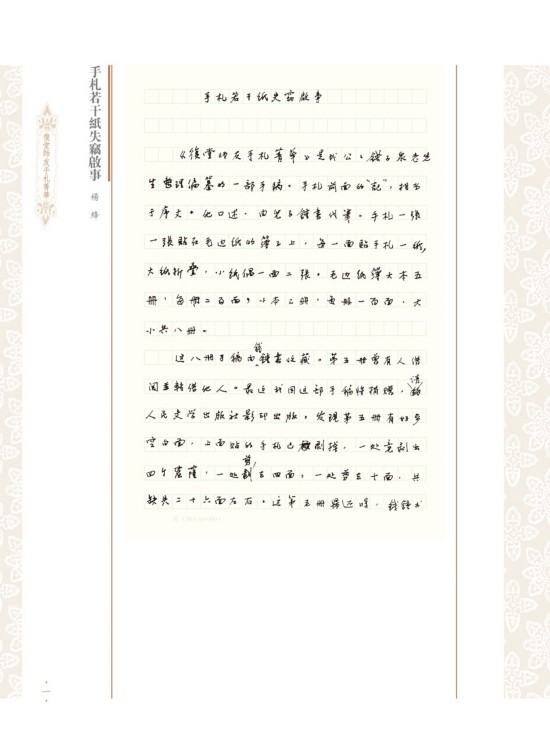 手札若干紙失竊啟事
楊絳
復堂師友手札菁華
手札若干纸失窃启事
《復堂師友手札菁华》是我公公錢子泉老先
生整理编纂的一部手稿。手札前面的“記”，相当
于序文。他口述，由兒子鍾書代筆。手札一张
一张贴在毛边纸的簿子上，每一面贴手札一纸，
大纸折叠，小纸偶一面二张。毛边纸簿大本五
册，每册二百面；小本三册，每册一百面，大
小共八册。
这八册手稿由錢鍾書收藏。第五册曾有人借
阅並转借他人。最近我因这部手稿将捐赠，請
人民文学出版社影印出版，发现第五册有好多
空白面，上面贴的手札已被剥掉，一处竟剥出
四个窟窿，一处剪去四面，一处剪去十面，共
缺失二十六面左右。这第五册归还时，錢鍾书
一